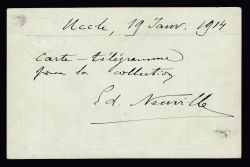 Uccle, 19 Janv. 1914
Carte-télégramme
pour la collection
Ed. Neuville